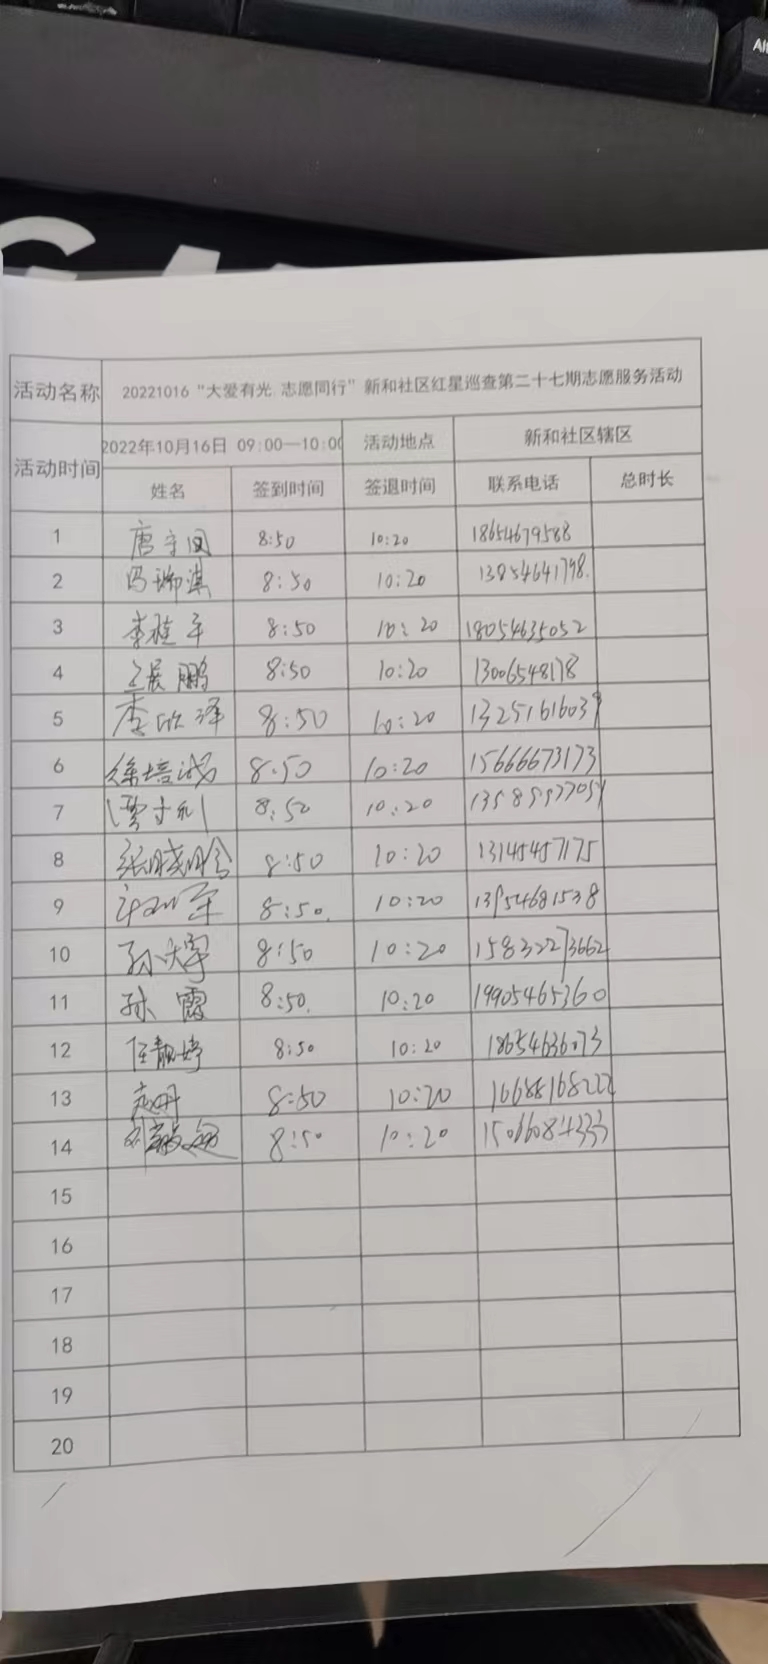 Alt
活动名称 20221016“大爱有光 志愿同行”新和社区红星巡查第二十七期志愿服务活动
活动时间 2022年10月16日 09:00—10:00 活动地点 新和社区辖区
姓名 签到时间 签退时间 联系电话 总时长
1 8:50 10:20 18654679588
2 冯瑞淇 8:50 10:20 13854641798.
3 李 军 8:50 10:20 18054635052
4 王展鹏 8:50 10:20 13006548178
5 李欣泽 8:50 10:20 13251616039
6 徐培 8:50 10:20 15666673173
7 8:50 10:20
8 张晓晗 8:50 10:20 13145457175
9 8:50. 10:20 13954681538
10 孙大宇 8:50 10:20 15832273662
11 孙霞 8:50. 10:20 19905465360
12 任靓婷 8:50 10:20 18654636073
13 8:50 10:20 16688168222
14 8:50 10:20 15066084333
15
16
17
18
19
20